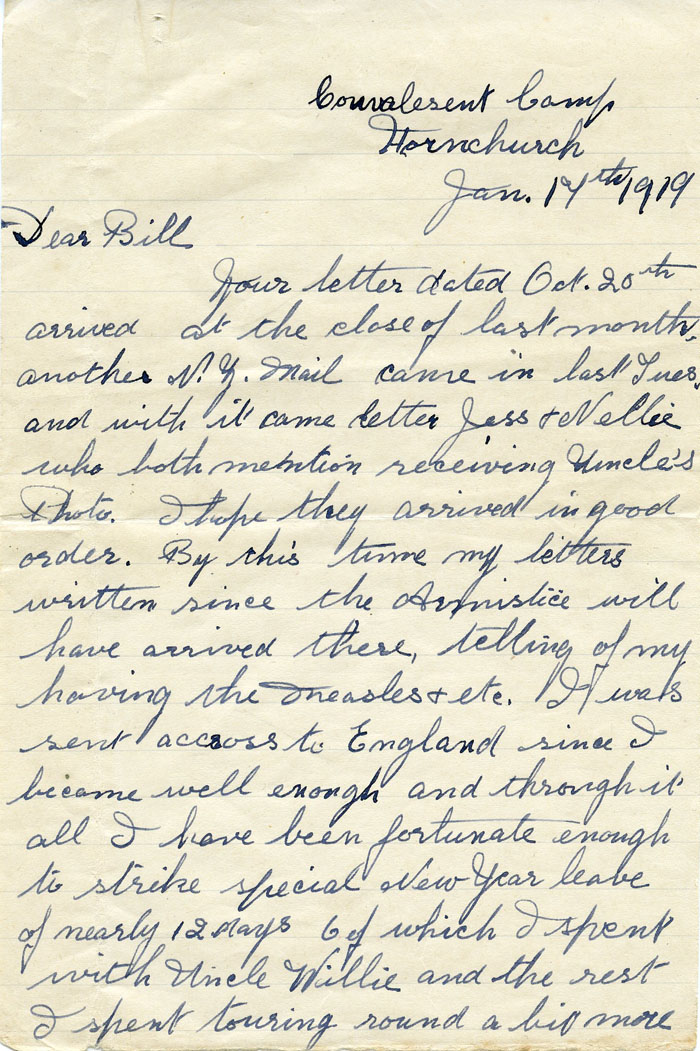 Convalesent Camp
Hornchurch
Jan. 14th 1919
Dear Bill
Your letter dated Oct. 20th
arrived at the close of last month,
another N.Z. Mail came in last Tues,
and with it came letter Jess & Nellie
who both mention receiving Uncle's
Photo. I hope they arrived in good
order. By this time my letters
written since the Armistice will
have arrived there, telling of my
having the Measles & etc. I was
sent accross to England since I
became well enough and through it
all I have been fortunate enough
to strike special New Year leave
of nearly 12 days 6 of which I spent
with Uncle Willie and the rest
I spent touring round a bit more